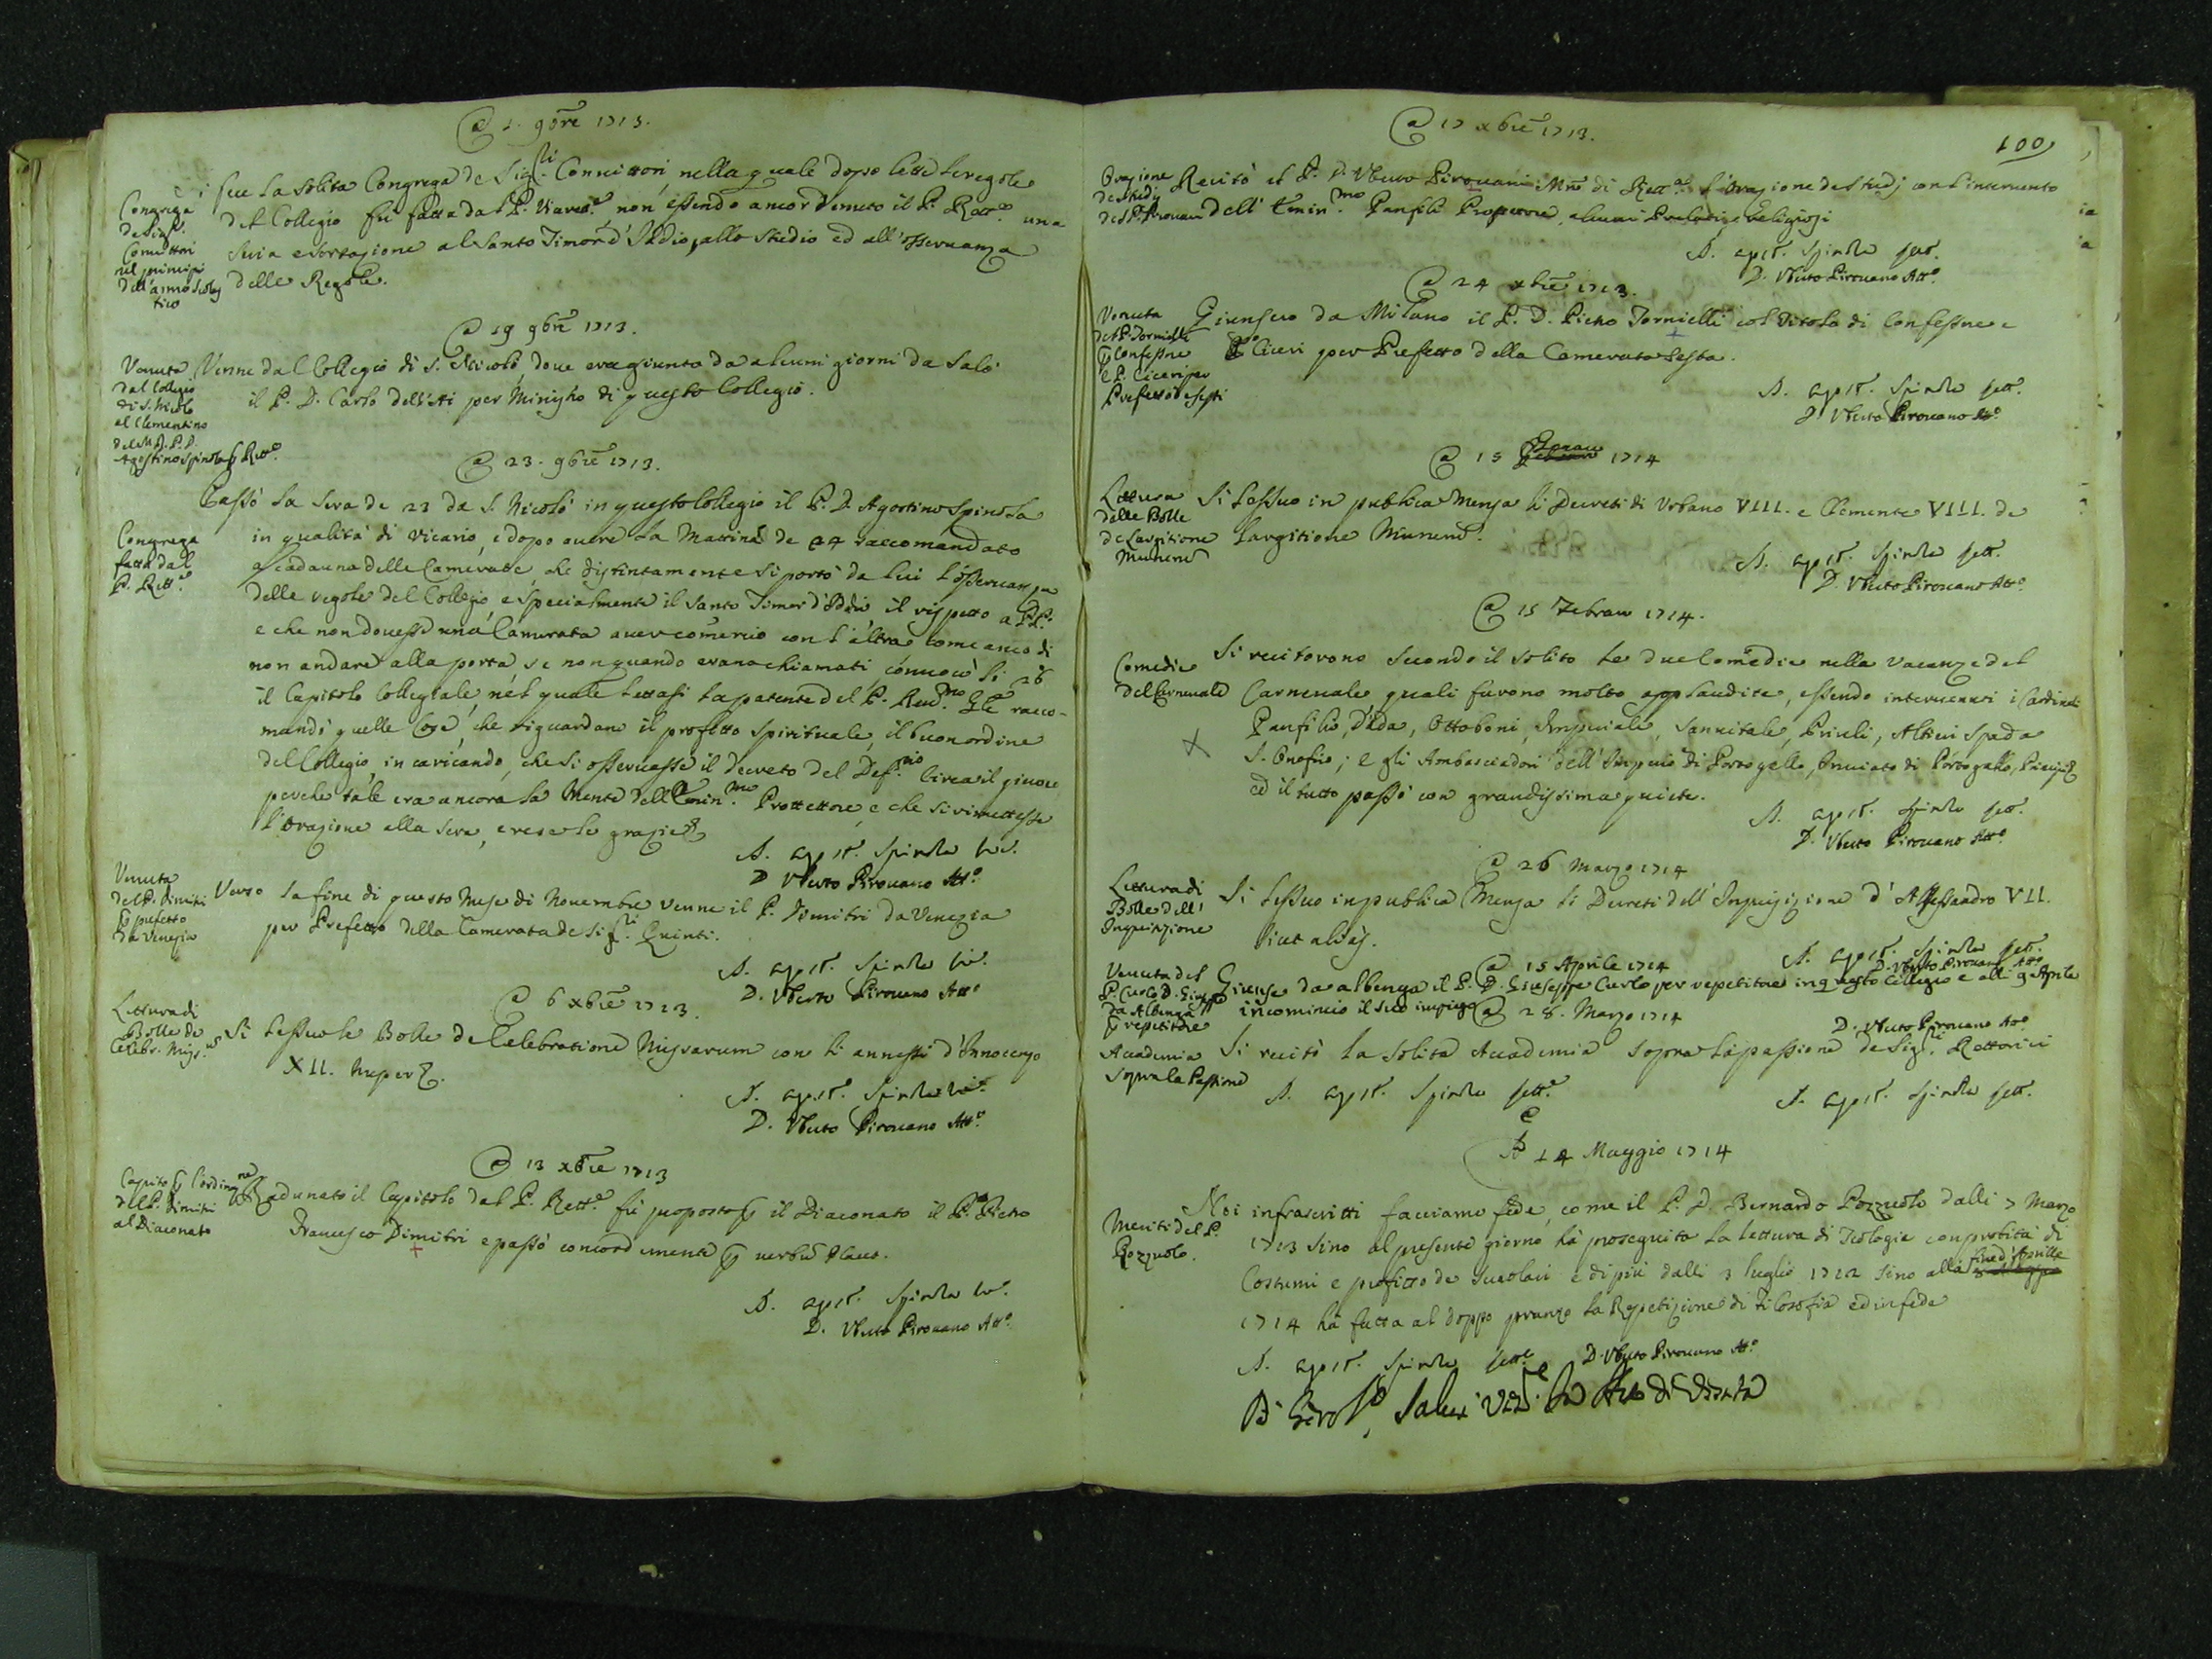 @ 1. 9bre 1713.
Congrega
de Sig.ri
Convittori
nel principi
dell'anno Scolas
tico
si fece la solita Congrega de Sig.ri Convittori, nella quale dopo lette le regole
del Collegio fu fatta dal P. Vicerett.e, non essendo ancor venuto il P. Rett.e una
seria esortazione al Santo Timor d'Iddio, allo studio ed all'osservanza
delle Regole.
@ 19 9bre 1713.
Venuta
dal Collegio
di S. Nicolò
al Clementino
del M.R.P.D.
Agostino Spinola Rett.e
Venne dal Collegio di S. Nicolò, dove era giunto da alcuni giorni da Salò
il P. D. Carlo dell'Ati per Ministro di questo Collegio.
@ 23. 9bre 1713.
Passò la sera de 23 da S. Nicolò in questo Collegio il P. D. Agostino Spinola
Congrega
fatta dal
P. Rett.e
in qualità di Vicario, e dopo avere la Mattina de 24 raccomandato
a cadauna delle Camerate, che distintamente si portò da lui l'osservanza
delle regole del Collegio, e specialmente il Santo Timor d'Iddio il rispetto a PP.
e che non dovesse una Camerata aver comercio con l'altra come anco di
non andare alla porta se non quando erano chiamati, convocò li 26
il Capitolo Collegiale, nel quale lettasi la patente del P. Rev.mo Gle racco-
mandò quelle cose, che riguardano il profitto spirituale, il buon ordine
del Collegio, incaricando, che si osservasse il decreto del Def.rio circa il giuoco
perche tale era ancora la Mente dell'Emin.mo Prottettore, e che si rimettesse
l'Orazione alla sera, e rese le grazie &
A. agst. Spinola
D Uberto Pirovano Att.o
Venuta
del P. Dimitri
prefetto
da Venezia
Verso la fine di questo Mese di Novembre venne il P. Dimitri da Venezia
per Prefetto della Camerata de Sig.ri Quinti.
A. agst. Spinola
D. Uberto Pirovano Att.o
@ 6 xbre 1713.
Lettura di
Bolle de
Celebr. Miss.
Si lessero le Bolle de Celebratione Missarum con li annessi d'Innocenzo
XII. Nuper &.
A. agst. Spinola
D. Uberto Pirovano Att.o
@ 13 xbre 1713
Capito l'ordinne
del P. Dimitri
al Diaconato
Radunato il Capitolo dal P. Rett.e fù proposto il Diaconato il P. Pietro
Francesco Dimitri e passò concordemente verbum Placet.
A. agst. Spinola
D. Uberto Pirovano Att.o
100
@ 17 xbre 1713.
Orazione
de Studj
del P. Pirovani
Recitò il P. D. Uberto Pirovani Mro di Rett.ca l'Orazione de studj con l'intervento
dell'Emin.mo Panfili Protettore, alcuni Prelati, e religiosi
A. agst. Spinola rett.
D. Uberto Pirovano Att.o
@ 24 xbre 1713.
Venuta
del P. Tornielli
Confessore
e P. Ciceri per
Prefetto de sesti
Giunsero da Milano il P. D. Pietro Tornielli col titolo di Confessore e
P. Ciceri per Prefetto della Camerata sesta.
A. agst. Spinola rett.
D. Uberto Pirovano Att.o
@ 15 Genaro 1714
Lettura
delle Bolle
de Largitione
Munerum
Si lessero in publica Mensa li Decreti di Urbano VIII. e Clemente VIII. de
Largitione Munerum.
A. agst. Spinola rett.
D. Uberto Pirovano Att.o
@ 15 Febraro 1714.
Comedie
del Carnevale
Si recitorono secondo il solito le due Comedie nella vacanze del
Carnevale quali furono molto applaudite, essendo intervenuti i Cardinali
Panfilio, d'Ada, Ottoboni, Imperiale, Sannitale, Priuli, Altieri Spada
S. Onofrio; e gli Ambasciadori dell'Imperio di Portogallo, Inviato di Portogallo, Principi &
ed il tutto passò con grandissima quiete.
A. agst. Spinola rett.
D. Uberto Pirovano Att.o
@ 26 Marzo 1714
Lettura di
Bolle dell'
Inquisizione
Si lessero in publica Mensa li Decreti dell'Inquisizione d'Alessandro VII.
sicut alias.
A. agst. Spinola rett.
D. Uberto Pirovano Att.o
@ 15 Aprile 1714
Venuta del
P. Curlo D. Giuseppe
da Albenga
repetitore
Giunse da Albenga il P. D. Giuseppe Curlo per repetitore in questo Collegio e alli 9 Aprile
incomincio il suo impiego
D. Uberto Pirovano Att.o
@ 28. Marzo 1714
Accademia
sopra la Passione
Si recitò la solita Accademia sopra la passione de Sig.ri Rettorici
A. agst. Spinola rett.e
A. agst. Spinola rett.
A 14 Maggio 1714
Meriti del P.
Pozzuolo.
Noi infrascritti facciamo fede, come il P. D. Bernardo Pozzuolo dalli 7 Marzo
1713 sino al presente giorno hà proseguita la lettura di Teologia con probità di
Costumi e profitto de Scuolari e di più dalli 3 luglio 1712 sino alla fine d'Aprille
1714 hà fatta al doppo pranzo la Repetizione di Filosofia ed in fede
A. agst. Spinola rett.e
D. Uberto Pirovano Att.o
in Atto di Visita